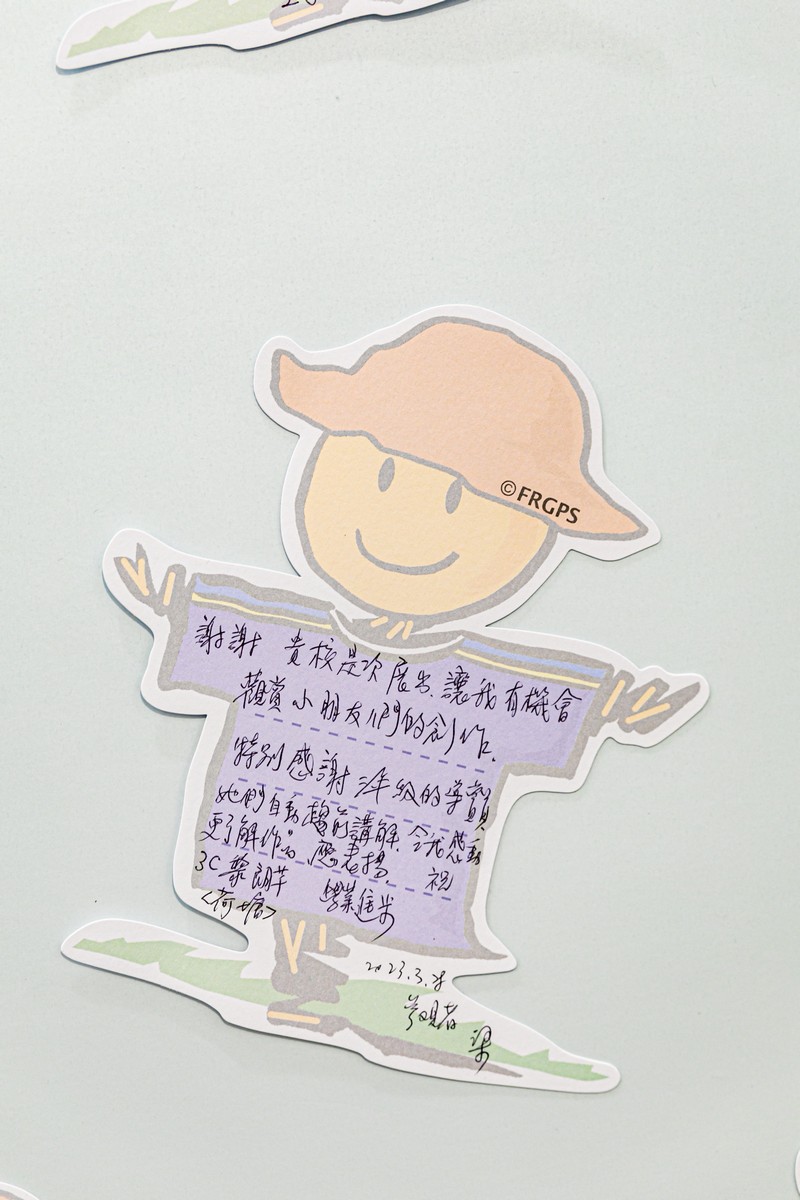 ©FRGPS
謝謝 貴校是次展出,讓我有機會
觀賞小朋友們的創作.
特別感謝 年級的導賞員
她們自動趨前講解.令我感動
更了解作品 應表揚. 祝
3C 黎朗芊 學業進步
<荷塘>
2023.3.
參觀者
梁